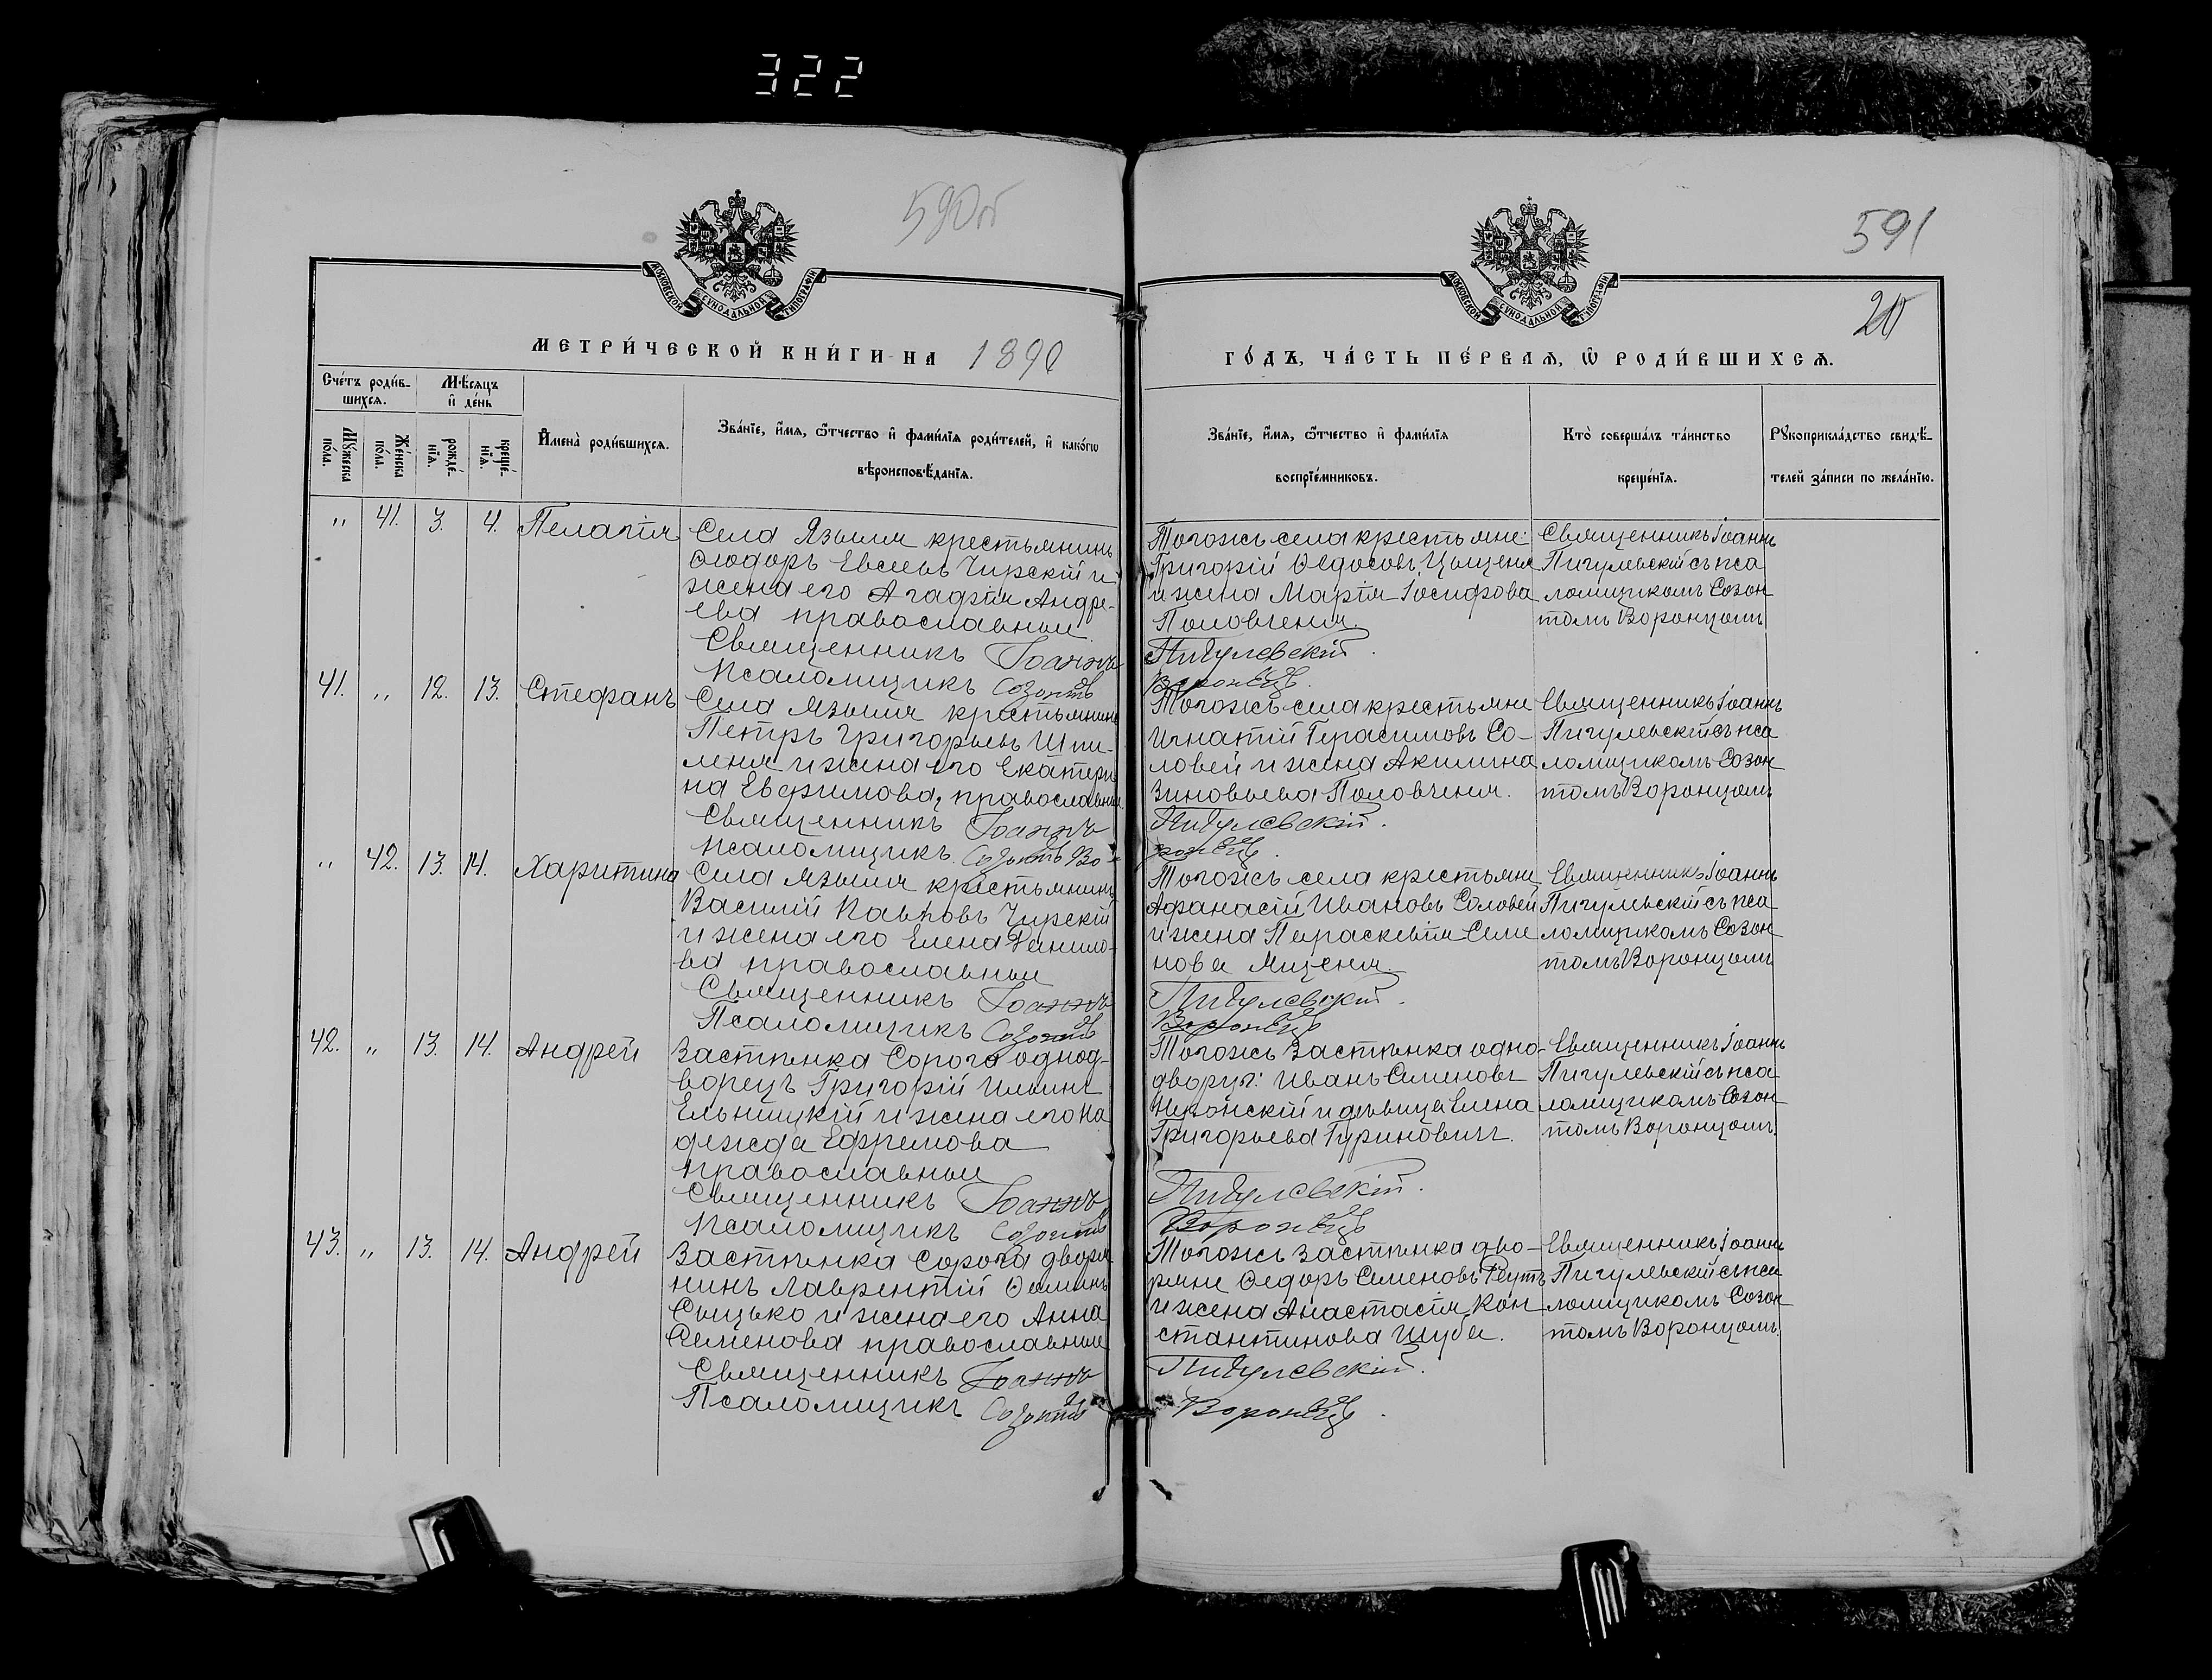 322
590об
591
20
МОСКОВСКОЙ СУНОДАЛЬНОЙ ТИПОГРАФІИ
МОСКОВСКОЙ СУНОДАЛЬНОЙ ТИПОГРАФІИ
МЕТРИ́ЧЕСКОЙ КНИ́ГИ НА 1890
ГО́ДЪ, ЧА́СТЬ ПЕ́РВАЯ, Ѡ РОДИ́ВШИХСЯ.
Сче́тъ роди́в-
шихся.
Мѣ́сяцъ
и де́нь
Мꙋ́жеска
по́ла.
Же́нска
по́ла.
рожде́-
нїя.
креще́-
нїя.
Имена̀ роди́вшихся.
Зва́нїе, и́мя, ѿтчество и фами́лїя роди́телей, и како́гѡ
вѣроисповѣ́данїя.
Зва́нїе, и́мя, ѿтчество и фами́лїя
воспрїе́мниковъ.
Кто̀ соверша́лъ та́инство
креще́нїя.
Рꙋкоприкла́дство свидѣ́-
телей за́писи по жела́нїю.
" 41. 3. 4. Пелагія
Села Языля крестьянинъ
Ѳеодоръ Евсеевъ Чирскій и
жена его Агафія Андре-
ева православныи
Священникъ Іоаннъ
Псаломщикъ Созонтъ
Тогожъ села крестьяне:
Григорій Ѳедосовъ Цыценя
и жена Марія Іосифова
Половченя.
Пигулевскій.
Воронецъ.
Священникъ Іоаннъ
Пигулевскій съ пса
ломщикомъ Созон
томъ Воронцомъ
41. " 12. 13. Стефанъ
Села Языля крестьянинъ
Петръ Григорьевъ Шпи-
леня и жена его Екатери
на Евфимова, православныи.
Священникъ Іоаннъ
Псаломщикъ Созонтъ Во-
Тогожъ села крестьяне
Игнатій Герасимовъ Со-
ловей и жена Акилина
Зиновьева Половченя.
Пигулевскій.
ронецъ.
Священникъ Іоаннъ
Пигулевскій съ пса
ломщикомъ Созон
томъ Воронцомъ
" 42. 13. 14. Харитина
Села Языля крестьянинъ
Василій Павловъ Чирскій
и жена его Елена Данило-
ва православныи
Священникъ Іоаннъ
Псаломщикъ Созонтъ
Тогожъ села крестьяне
Афанасій Ивановъ Соловей
и жена Параскевія Семе
нова Яценя.
Пигулевскій.
Воронецъ
Священникъ Іоаннъ
Пигулевскій съ пса
ломщикомъ Созон
томъ Воронцомъ
42. " 13. 14. Андрей
Застѣнка Сорога однод-
ворецъ Григорій Ильинъ
Ельницкій и жена его На
дежда Ефремова
православныи
Священникъ Іоаннъ
Псаломщикъ Созонтъ
Тогожъ застѣнка одно-
дворцы: Иванъ Семеновъ
и дѣвица Елена
Григорьева Гуриновичъ.
Пигулевскій.
Воронецъ
Священникъ Іоаннъ
Пигулевскій съ пса
ломщикомъ Созон
томъ Воронцомъ.
43. " 13. 14. Андрей
Застѣнка Сорога дворя
нинъ Лаврентій Ѳоминъ
Сыцько и жена его Анна
Семенова православныи
Священникъ Іоаннъ
Псаломщикъ Созонтъ
Тогожъ застѣнка дво-
ряне Ѳедоръ Семеновъ Реутъ
и жена Анастасія Кон
стантинова Шуба.
Пигулевскій.
Воронецъ.
Священникъ Іоаннъ
Пигулевскій съ пса
ломщикомъ Созон
томъ Воронцомъ.